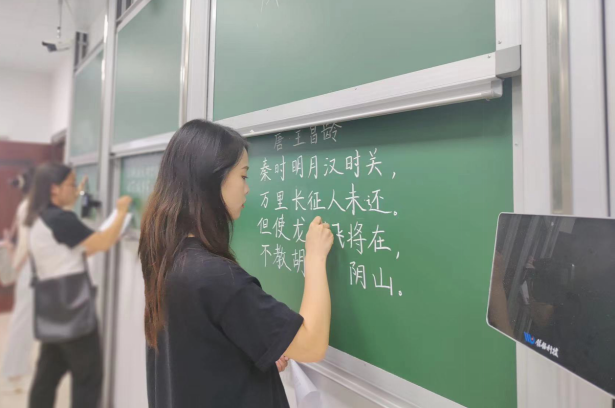 唐·王昌龄
秦时明月汉时关，
万里长征人未还。
但使龙 飞将在，
不教胡 阴山。